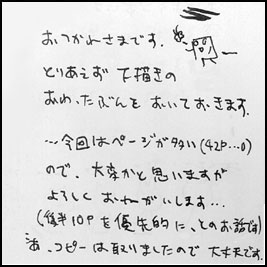 おつかれさまです。
とりあえず下描きの
おわったぶんを おいておきます。
…今回はページが多い(42P…0)
ので、大変かと思いますが
よろしく おねがいします…
(後半10Pを優先的に、とのお話です)
あ、コピーは取りましたので大丈夫です。